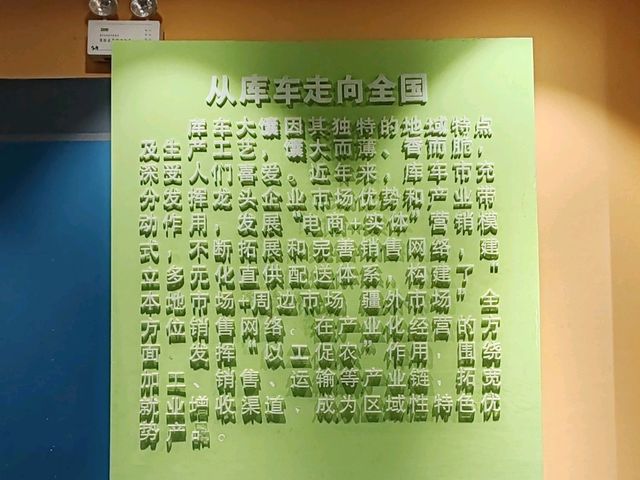 从库车走向全国
库车大馕因其独特的地域特点
及生产工艺，馕大而薄、香而脆，
深受人们喜爱。近年来，库车市充
分发挥龙头企业市场优势和产业带
动作用，发展“电商+实体”营销模
式，不断拓展和完善销售网络，建
立多元化直供配送体系，构建了“
本地市场+周边市场 疆外市场”全
方位销售网络。在产业化经营的全方
面 发挥“以工促农”作用，围绕
加工、销售、运输等产业链，拓宽
就业增收渠道，成为区域性特色优
势产品。